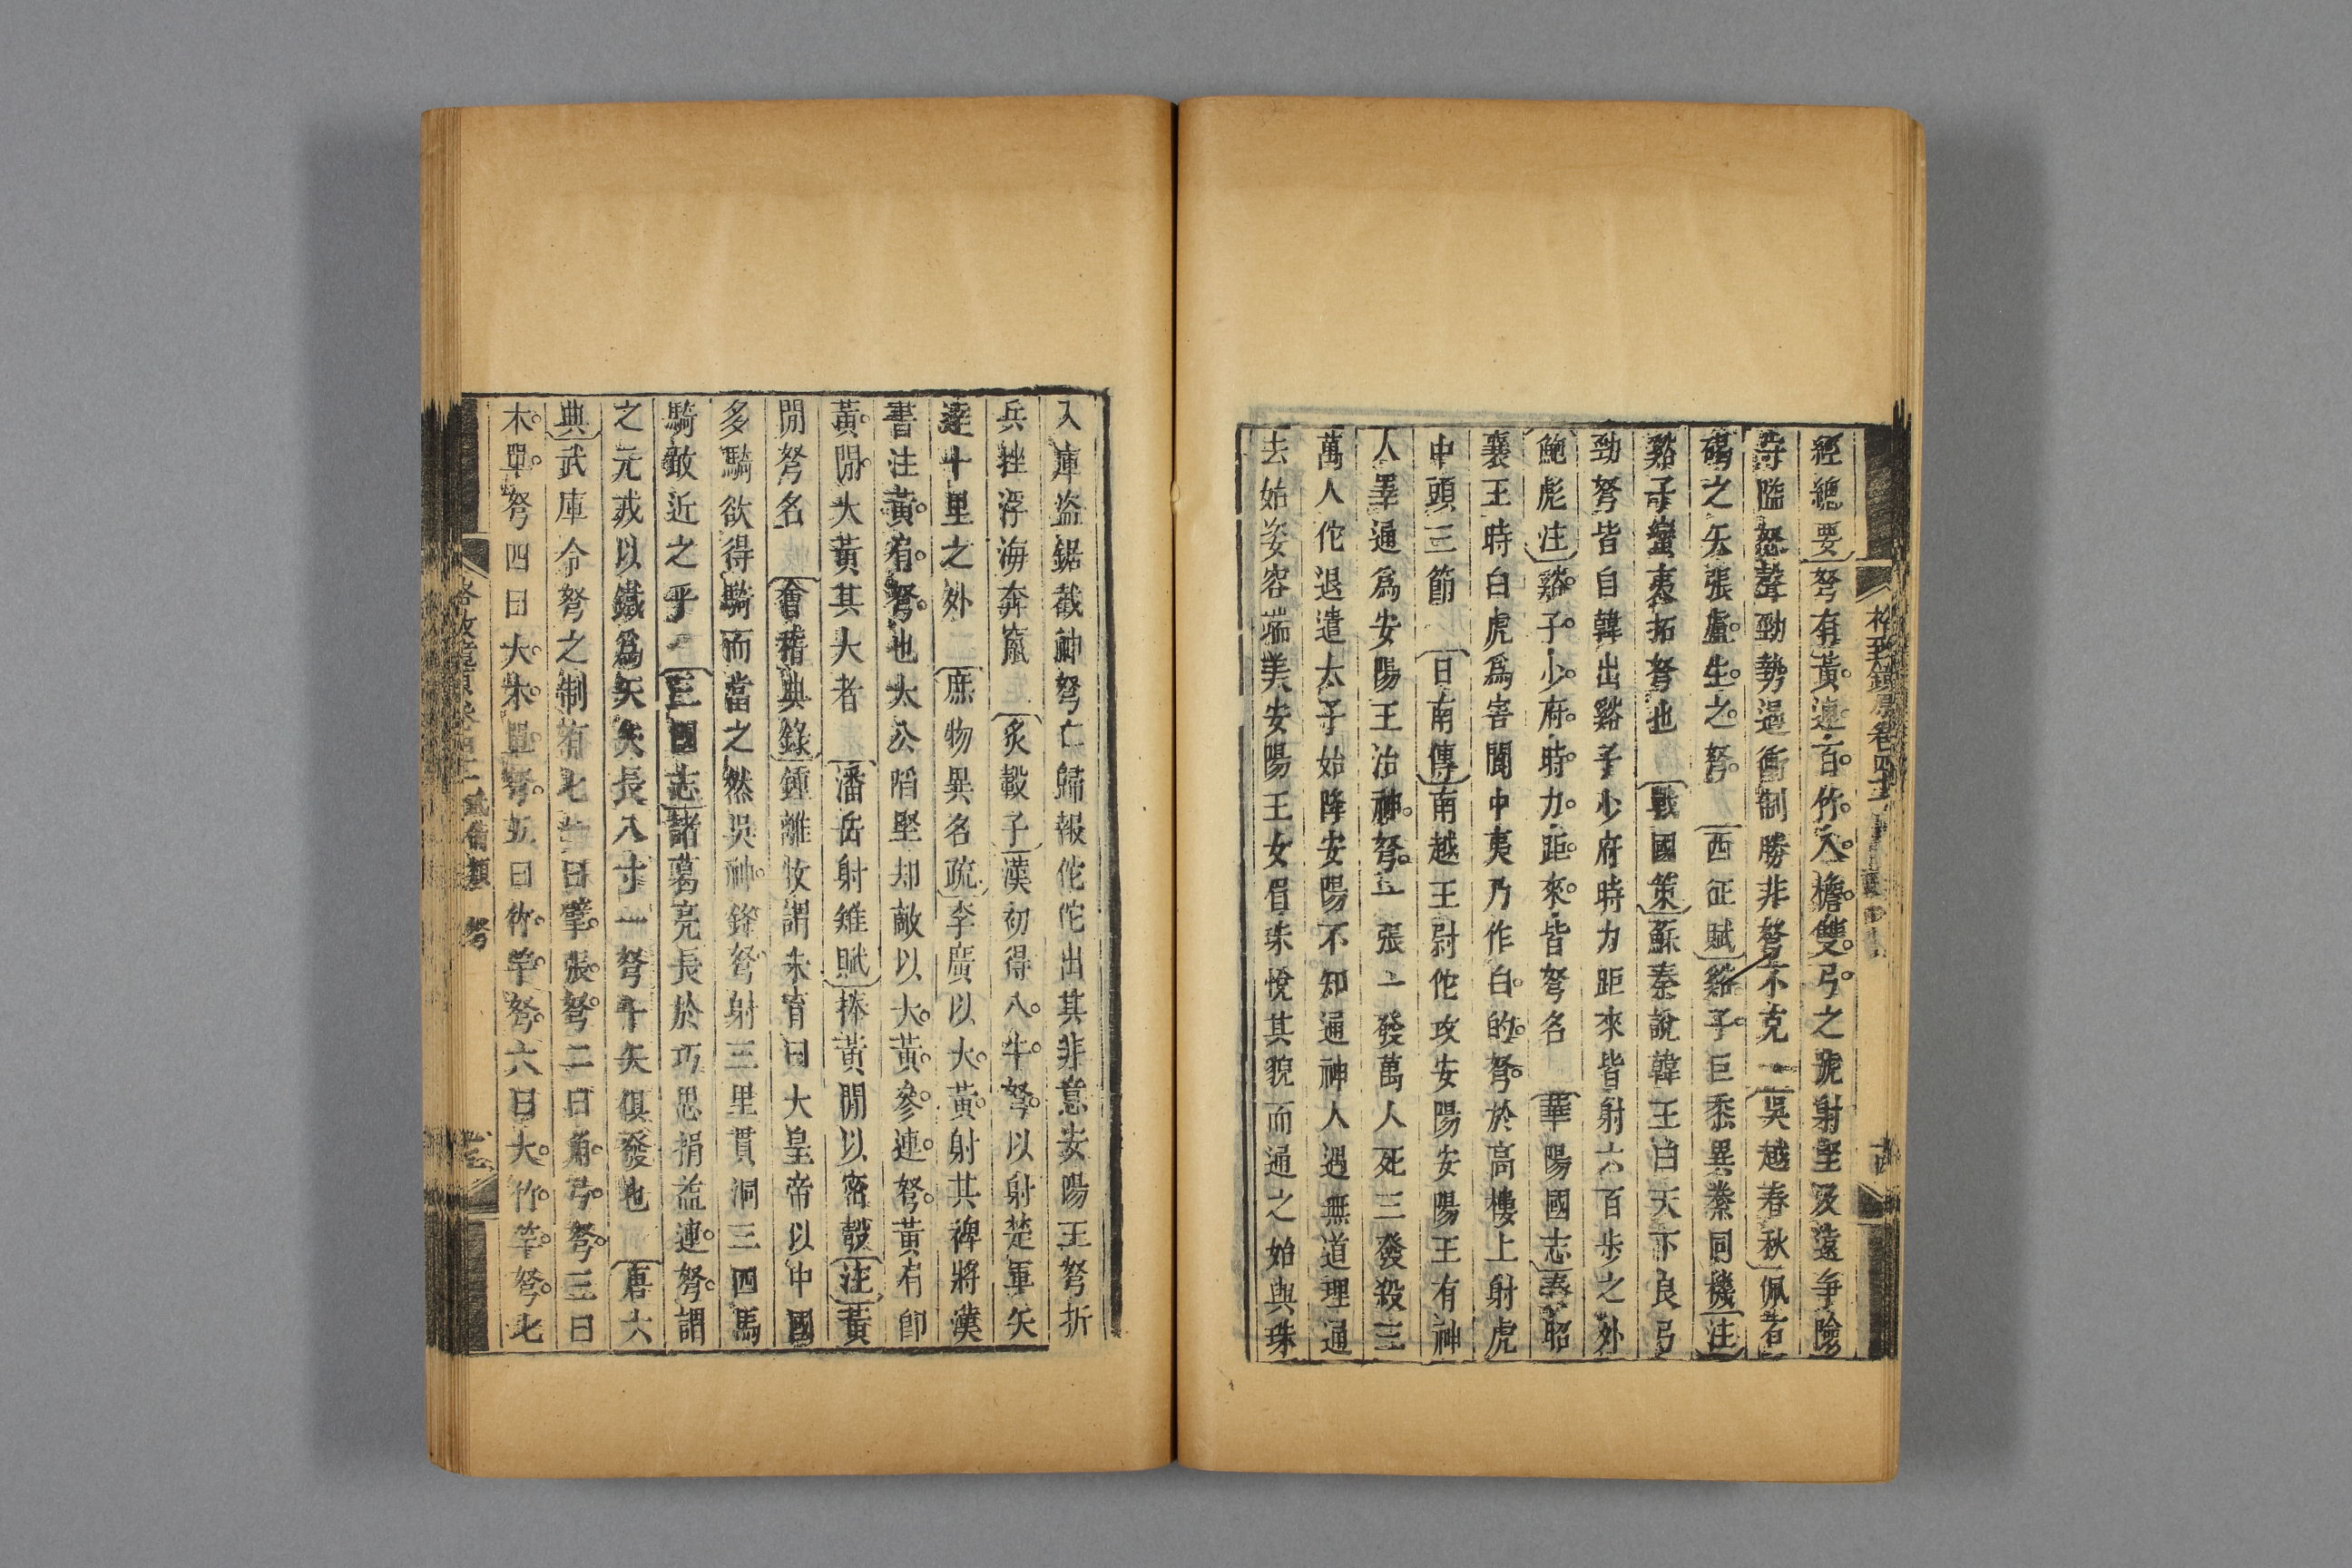 經總要弩有黃連百竹八檐雙弓之號射堅及遠爭險
守隘怒聲勁勢遏衝制勝非弩不克 吳越春秋佩者
碭之矢張盧生之弩 西征賦谿子巨黍異絭同機注
谿子蠻夷拓弩也 戰國策蘇秦說韓王曰天下良弓
勁弩皆自韓出谿子少府時力距來皆射六百步之外
鮑彪注谿子少府時力距來皆弩名 華陽國志秦昭
襄王時白虎爲害閬中夷乃作白的弩於高樓上射虎
中頭三節 日南傳南越王尉佗攻安陽安陽王有神
人睪通爲安陽王治神弩一張一發萬人死三發殺三
萬人佗退遣太子始降安陽不知通神人遇無道理通
去始姿容端美安陽王女眉珠悅其貌而通之始與珠
入庫盜鋸截神弩亡歸報佗佗出其非意安陽王弩折
兵挫浮海奔竄 炙轂子漢初得八牛弩以射楚軍矢
達十里之外 庶物異名疏李廣以大黃射其裨將漢
書注黃肩弩也太公陷堅却敵以大黃參連弩黃肩即
黃閒大黃其大者 潘岳射雉賦捧黃閒以密彀注黃
閒弩名 會稽典錄鍾離牧謂朱育曰大皇帝以中國
多騎欲得騎而當之然吳神鋒弩射三里貫洞三四馬
騎敢近之乎 三國志諸葛亮長於巧思損益連弩謂
之元戎以鐵爲矢矢長八寸一弩十矢俱發也 唐六
典武庫令弩之制有七一曰擘張弩二曰角弓弩三曰
木單弩四曰大木單弩五曰竹竿弩六曰大竹竿弩七